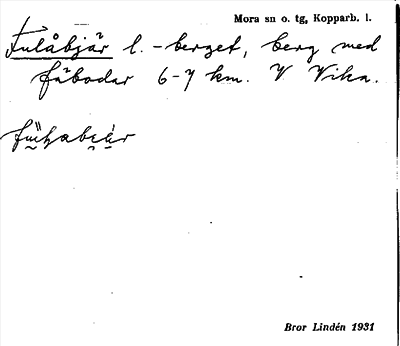 Mora sn o. tg, Kopparb. l.
Fulåbjär l. -berget, berg med
fäbodar 6-7 km. V Vika.
Bror Lindén 1931